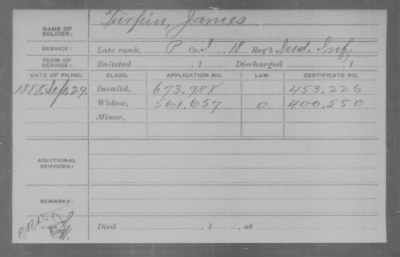 NAME OF SOLDIER: Turpin, James
SERVICE: Late rank, Pvt, 18 Reg't Ind. Inf.
TERM OF SERVICE: Enlisted , 1 Discharged , 1
DATE OF FILING. CLASS. APPLICATION NO. LAW. CERTIFICATE NO.
Sep. 29 Invalid, 673,988 453,226
Widow, 561,657 0 400,550
Minor,
ADDITIONAL SERVICES:
REMARKS:
Died , 1 , at